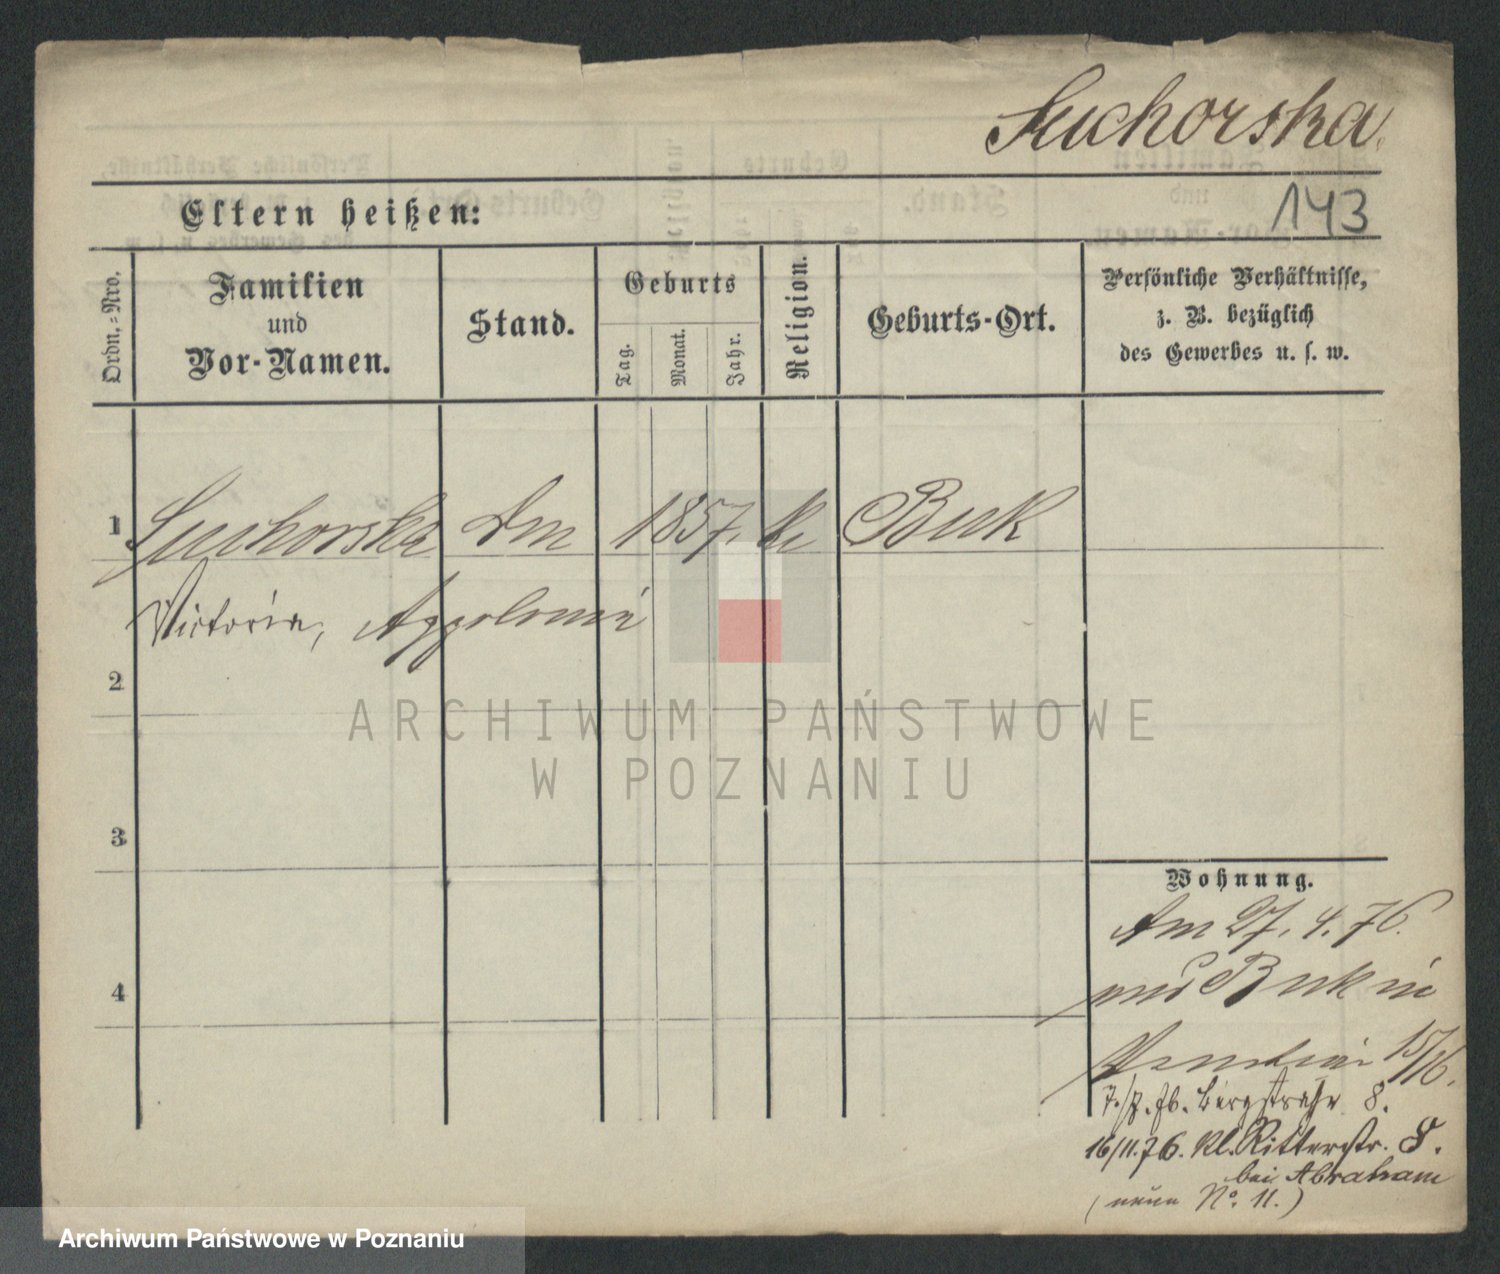 Suchorska.
143
Eltern heißen:
Ordn.-Nro.
Familien
und
Vor-Namen.
Stand.
Geburts
Tag.
Monat.
Jahr.
Religion.
Geburts-Ort.
Persönliche Verhältnisse,
z. B. bezüglich
des Gewerbes u. s. w.
1 Suchorska 1857. k. Buk
Victoria, Appolonia
2
3
4
Wohnung.
Am 27. 4. 76.
aus Buk in
15/16.
7./7. 76. Bergstraße 8.
16/11. 76. Kl. Ritterstr.
bei Abraham
(neue No. 11.)
ARCHIWUM PAŃSTWOWE
W POZNANIU
Archiwum Państwowe w Poznaniu